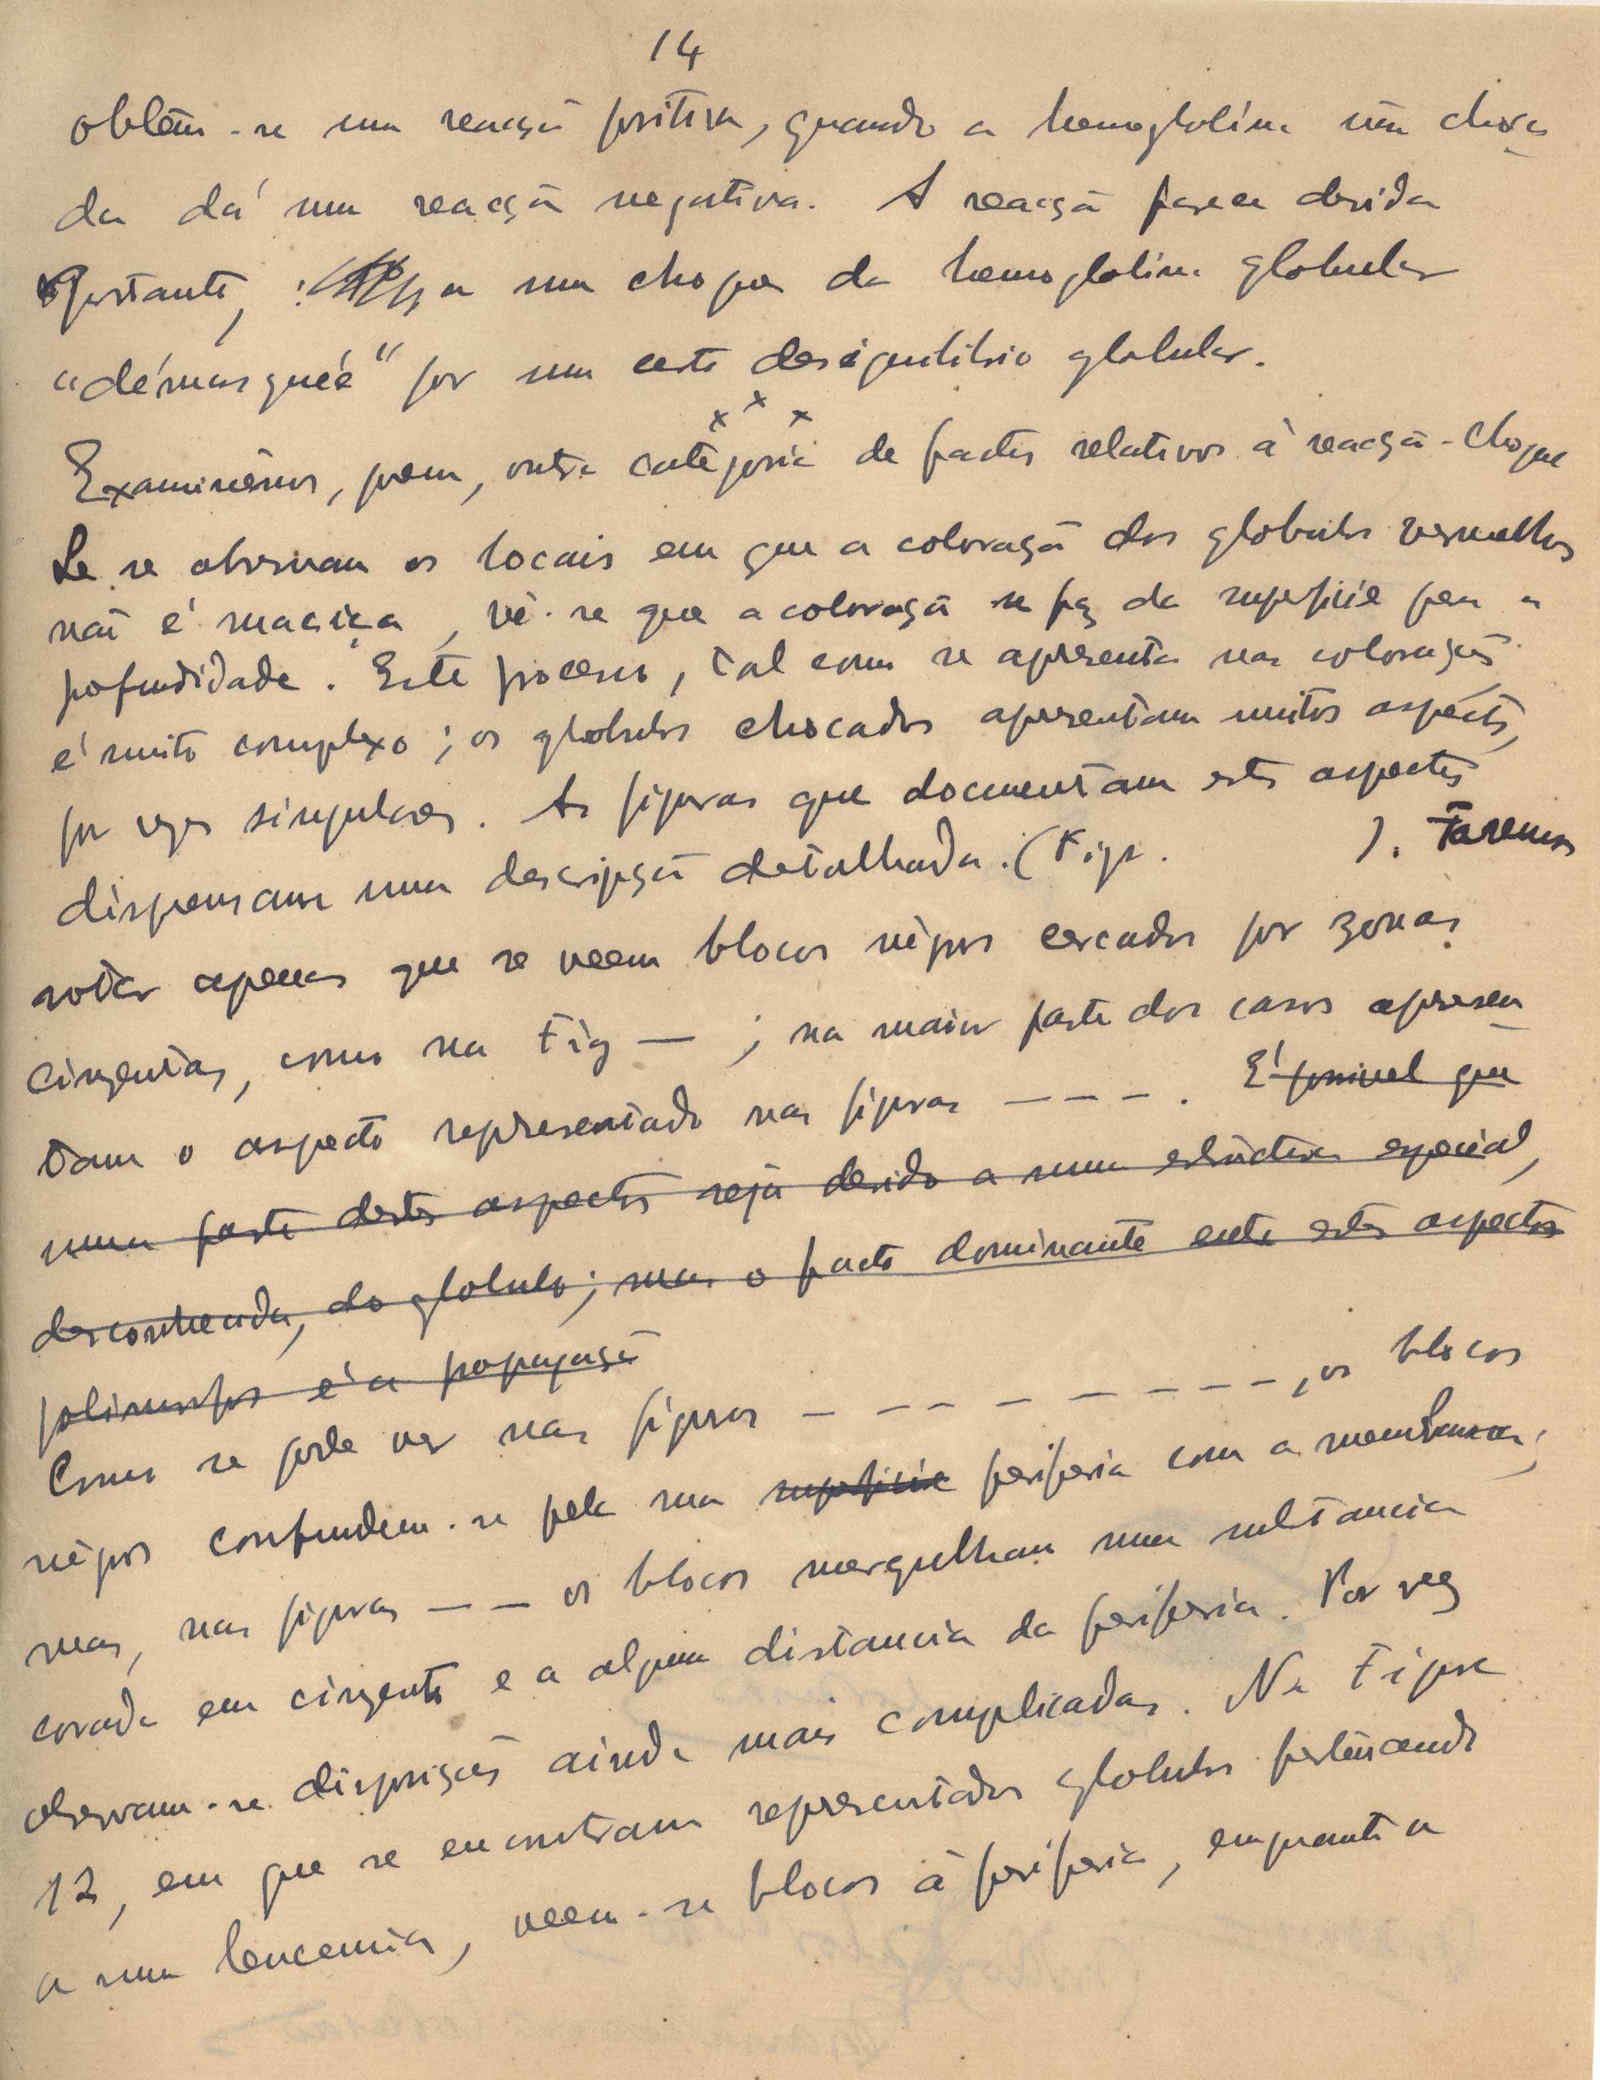 14
obtêm-se uma reacçã positiva, quando a hemoglobina não choca
da dá uma reacçã negativa. A reacçã parece devida
portanto, a um choque da hemoglobina globular
"démasqué" por um certo desiquilibrio globular.
x x x
Examinêmos, porem, outra categoria de factos relativos à reacçã-choque
Se se observam os locais em que a coloraçã dos globulos vermelhos
não é maciça, vê-se que a coloraçã se faz da superficie para a
profundidade. Este processo, tal como se apresenta nas colorações
é muito complexo; os globulos chocados apresentam muitos aspectos,
por vezes singulares. As figuras que documentam estes aspectos
dispensam uma descripçã detalhada. (Figs. ). Faremos
notar apenas que se veem blocos négros cercados por zonas
cinzentas, como na Fig — ; na maior parte dos casos apresen
tam o aspecto representado nas figuras — — — . É possivel que
uma parte destes aspectos seja devido a uma estructura especial,
desconhecida, do globulo; mas o facto dominante entre estes aspectos
polimorfos é a propagaçã
Como se pode ver nas figuras — — — — — — — —, os blocos
négros confundem-se pela sua superficie periferia com a membrana;
mas, nas figuras — — os blocos mergulham numa substancia
corada em cinzento e a alguma distancia da periferia. Por vez
observam-se disposições ainda mais complicadas. Na Figura
12, em que se encontram representados globulos pertencendo
a uma leucemia, veem-se blocos à periferia, emquanto a